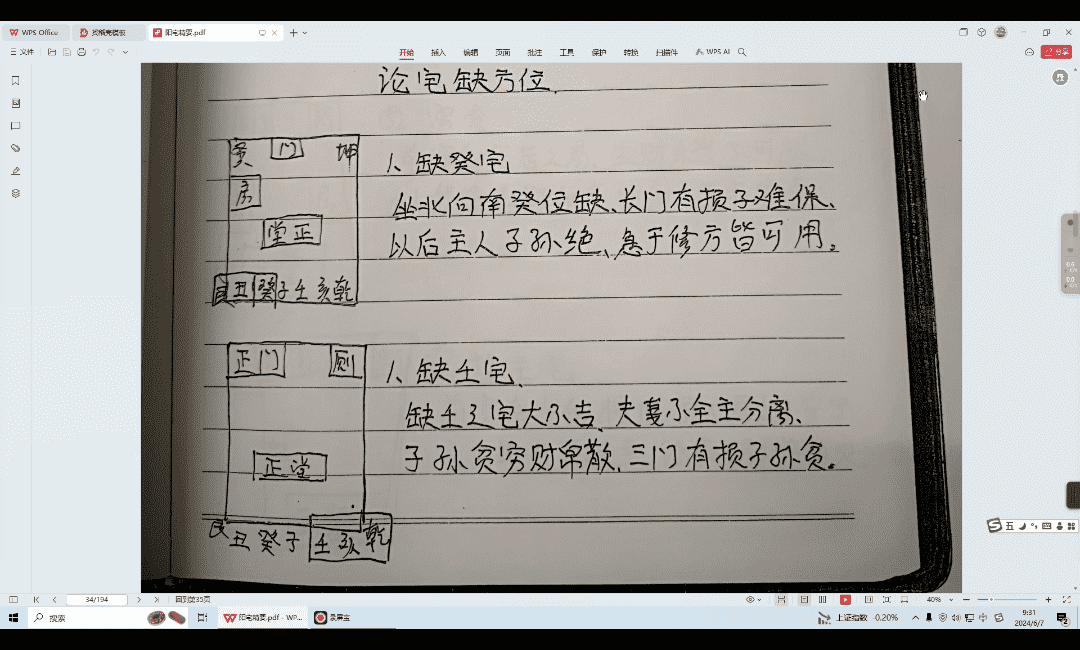 WPS Office
找稻壳模板
阳宅精要.pdf
文件
开始 插入 编辑 页面 批注 工具 保护 转换 扫描件 WPS AI
分享
论宅缺方位
门 坤
房
堂正
艮丑癸子壬亥乾
1、缺癸宅
坐北向南癸位缺、长门有损子难保、
以后主人子孙绝、急于修方皆可用。
正门 厕
正堂
艮丑癸子壬亥乾
1、缺壬宅、
缺壬之宅大不吉、夫妻不全主分离、
子孙贫穷财帛散、三门有损子孙贫。
34/194
回到第35页
40%
搜索
阳宅精要.pdf - WP...
录屏宝
上证指数 -0.20%
中
9:31
2024/6/7
五